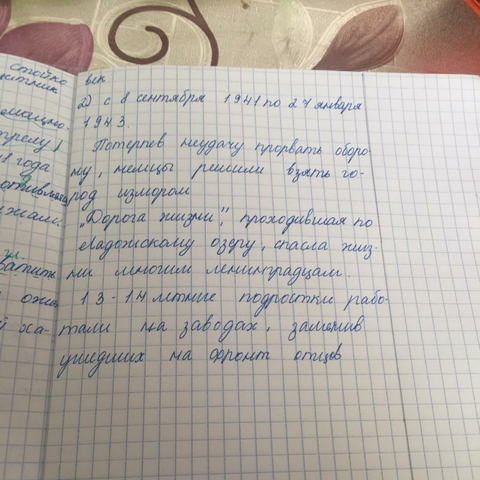 стойко
мощно.
18 года
век
2) с 8 сентября 1941 по 27 января
1943.
Потерпев неудачу прорвать оборо-
ну, немцы решили взять го-
род измором
„Дорога жизни", проходившая по
Ладожскому озеру, спасла жиз-
ни многим ленинградцам.
13-14 летние подростки рабо-
тали на заводах, заменив
ушедших на фронт отцов